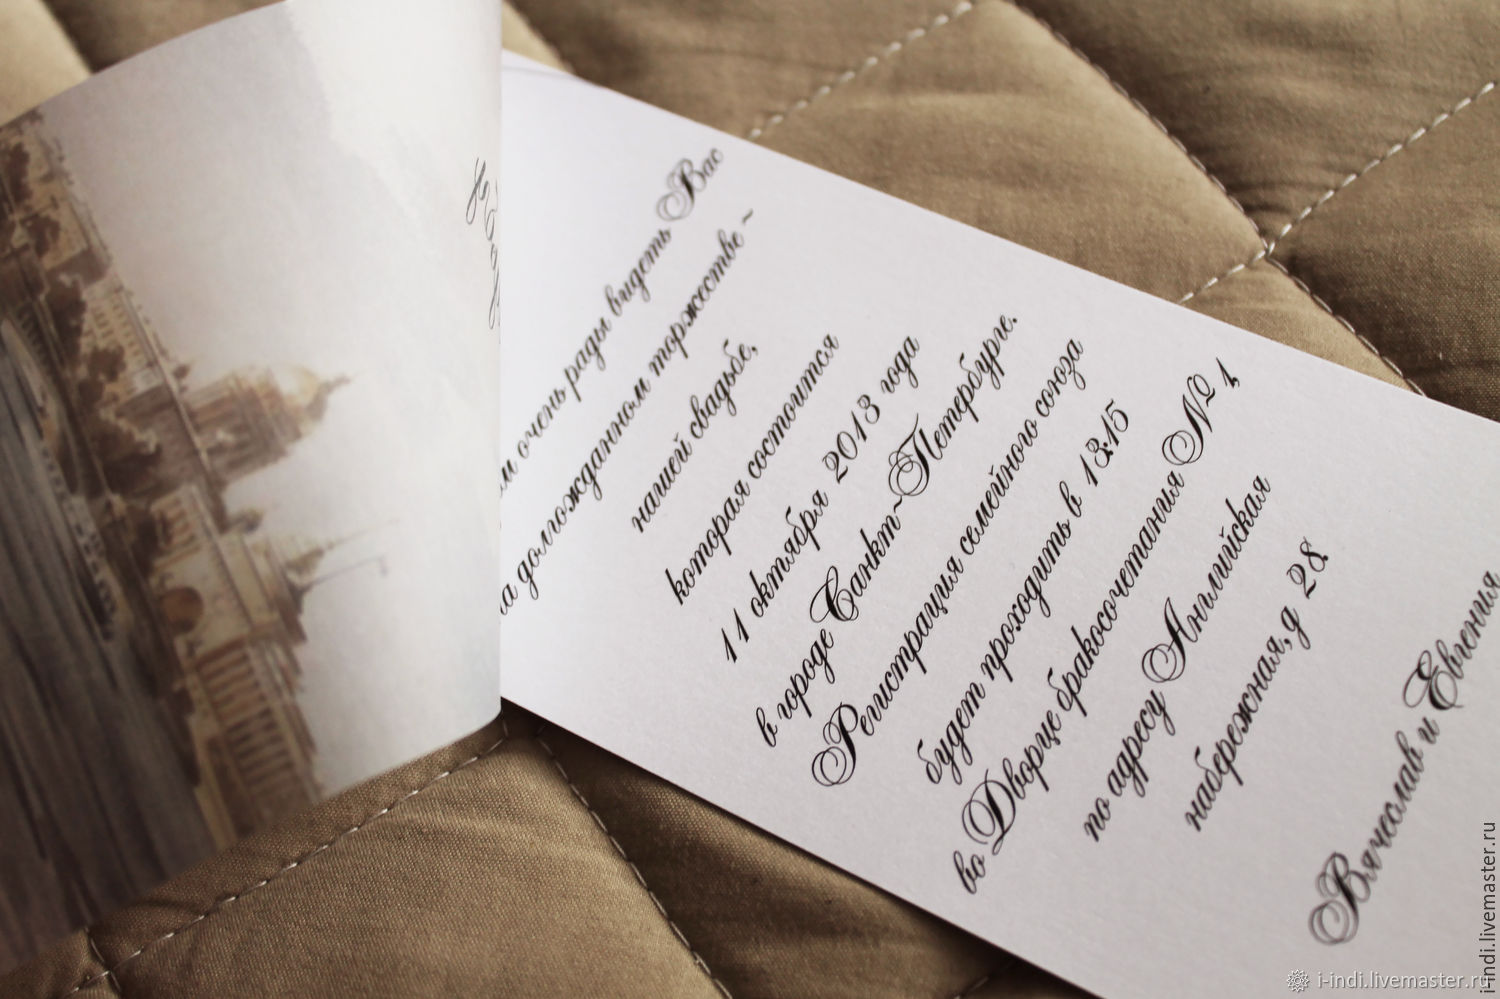 очень рады видеть Вас
долгожданном торжестве ~
нашей свадьбе,
которая состоится
11 октября 2013 года
в городе Санкт~Петербурге.
Регистрация семейного союза
будет проходить в 13:15
во Дворце бракосочетания № 1,
по адресу Английская
набережная, д 28.
Вячеслав и Евгения
i-indi.livemaster.ru
i-indi.livemaster.ru